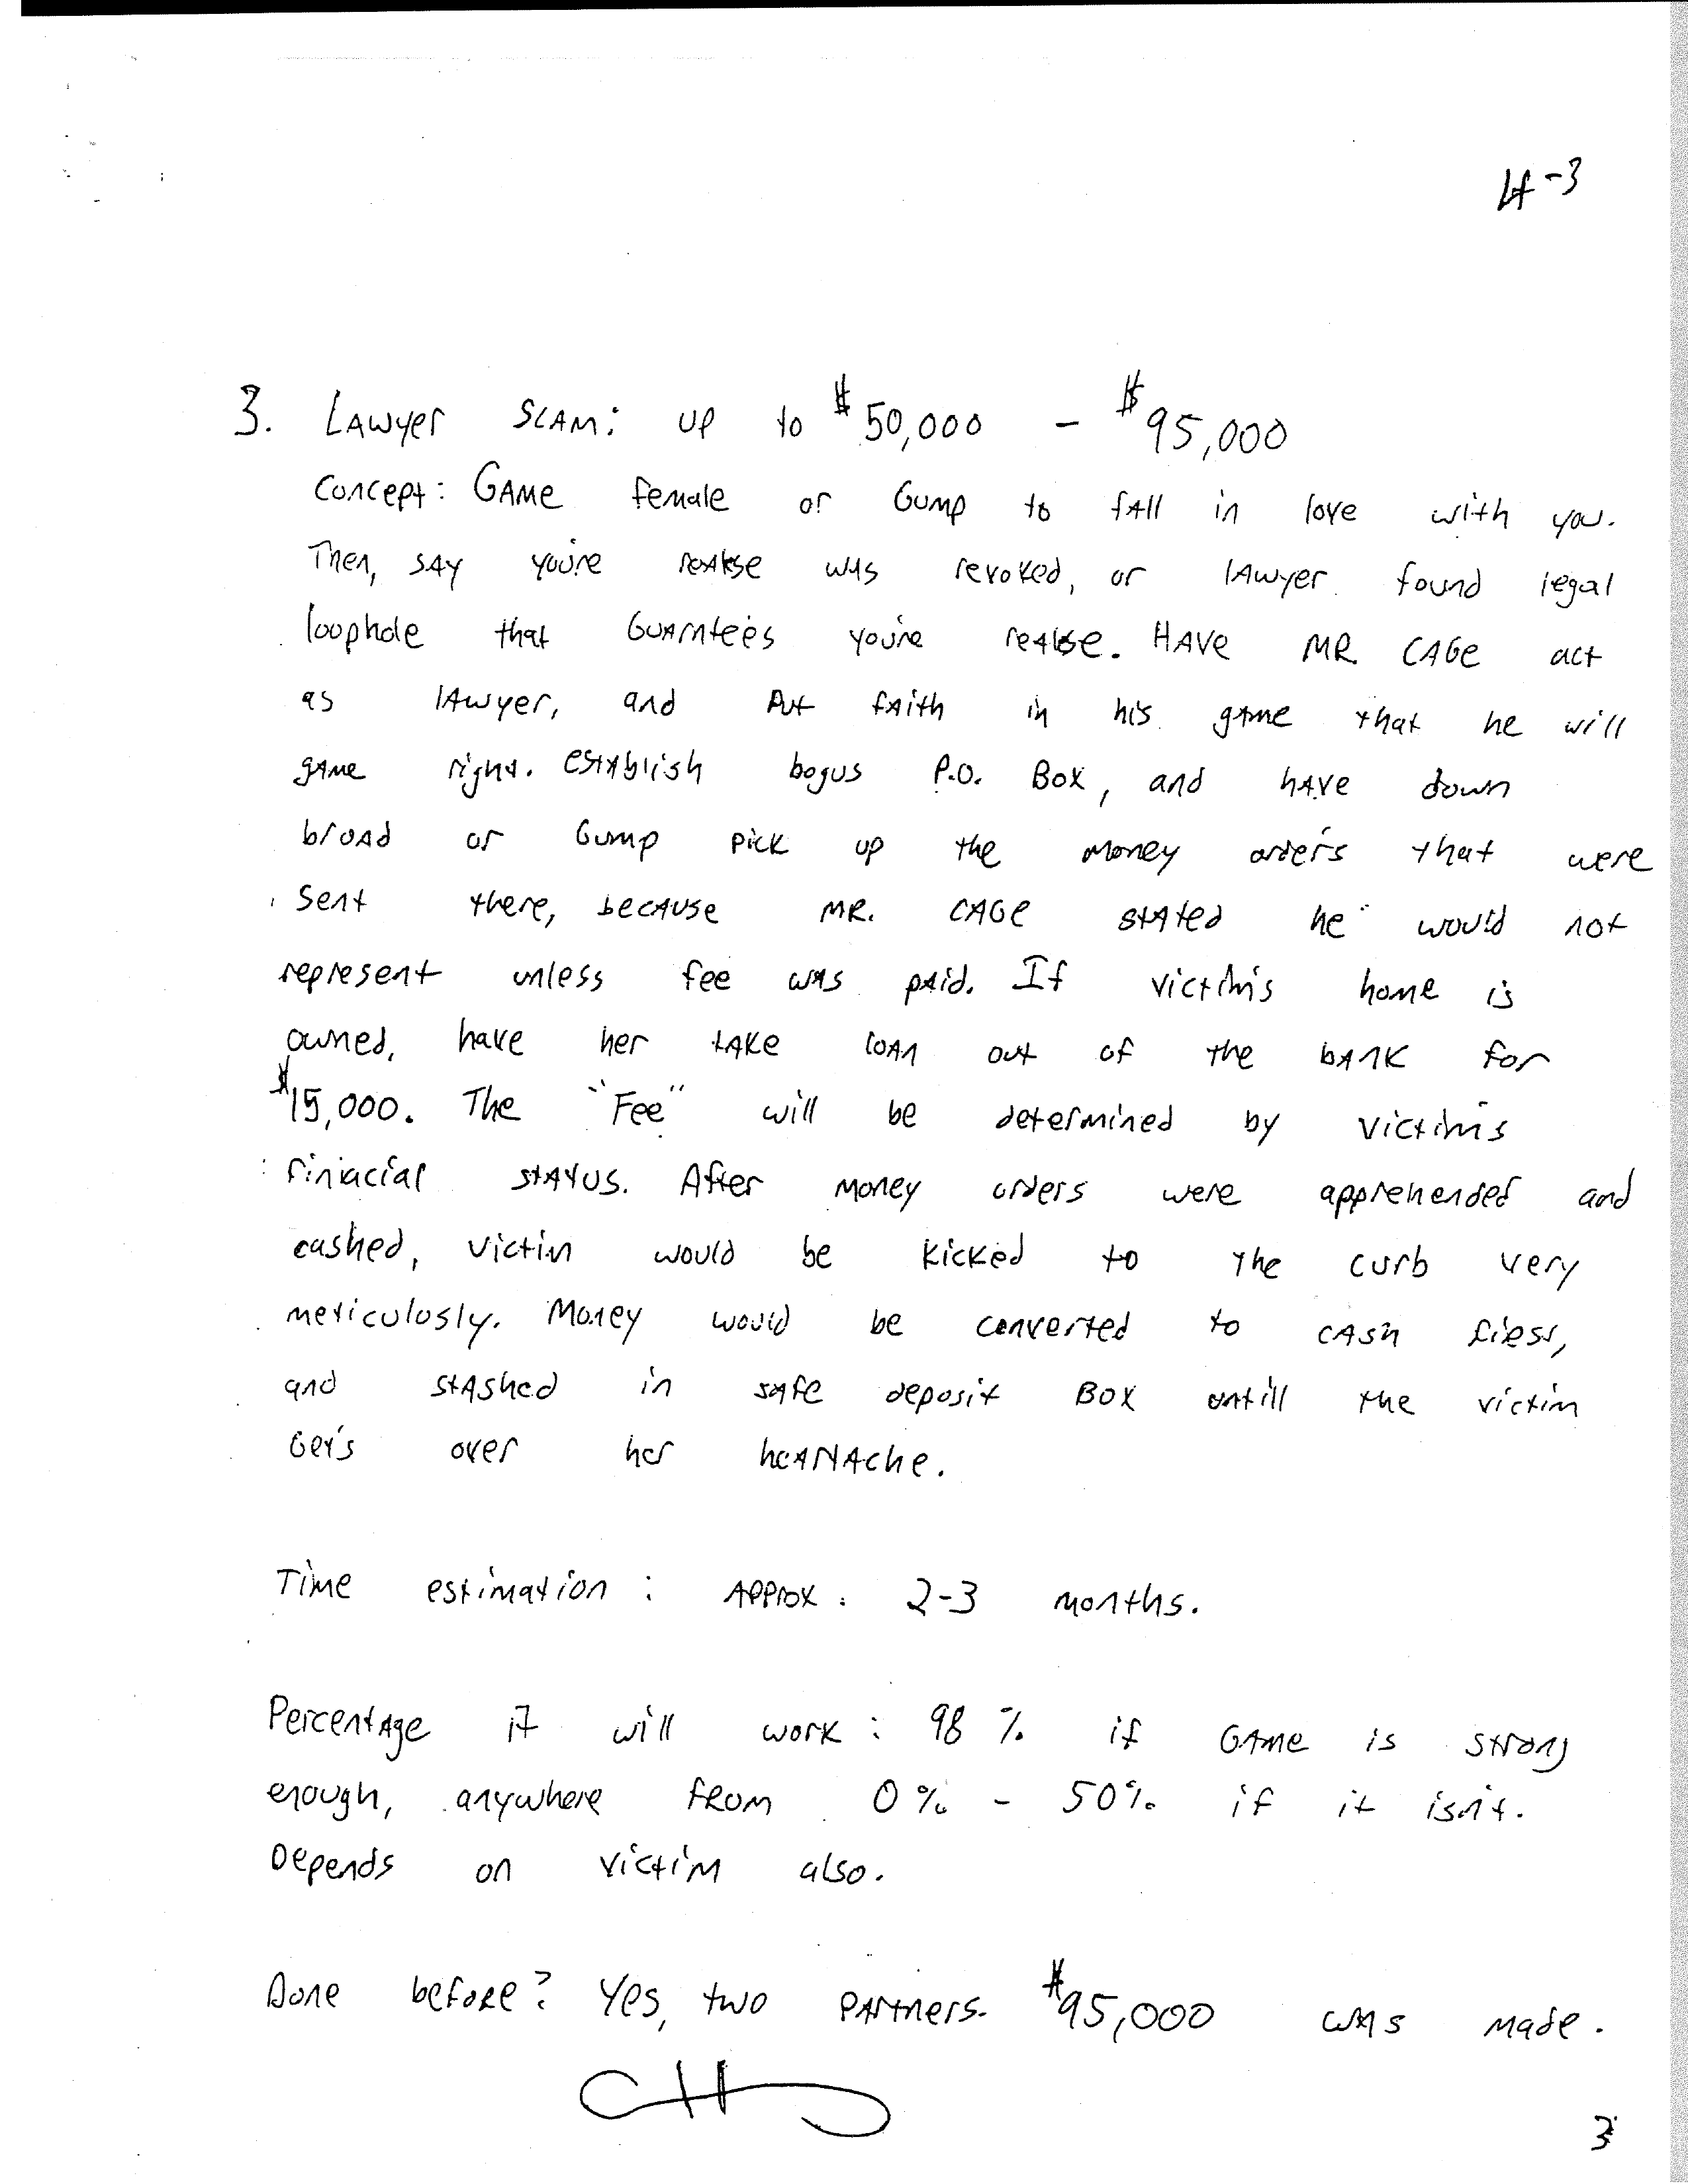 4-3
3. LAwyer SCAM: up to $50,000 - $95,000
Concept: GAME female or Gump to fAll in love with you.
Then, SAY you're realse was revoked, or lAwyer found legal
loophole that GUArntees you're realse. HAVE MR CAGE act
as lAwyer, and Put fAith in his game that he will
game right. establish bogus P.O. Box, and hAve down
broad or Gump pick up the money orders that were
sent there, because MR. CAGE stated he would not
represent unless fee was paid. If victim's home is
owned, have her take loan out of the bank for
$15,000. The "Fee" will be determined by victims
finiacial status. After money orders were apprehended and
cashed, victim would be kicked to the curb very
meticulosly. Money would be converted to cash first,
and stashed in safe deposit Box untill the victim
Get's over her heartache.
Time estimation: Approx. 2-3 months.
Percentage it will work: 98% if GAme is strong
enough, anywhere from 0% - 50% if it isn't.
Depends on victim also.
Done before? Yes, two partners. $95,000 was made.
3